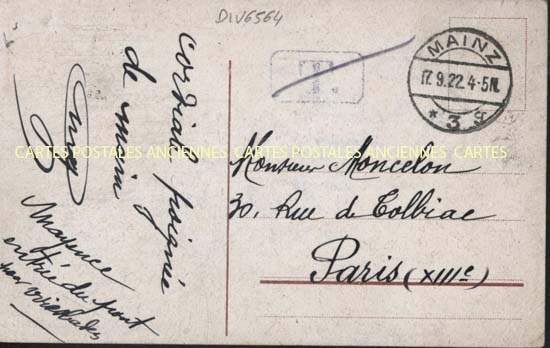 DIV6564
T.
MAINZ
17.9.22.4-5N.
* 3 g
cordiale poignée
de main
CARTES POSTALES ANCIENNES CARTES POSTALES ANCIENNES CARTES
Monsieur Moncelon
30, Rue de Tolbiac
Paris (XIIIe)
Mayence
entrée du pont